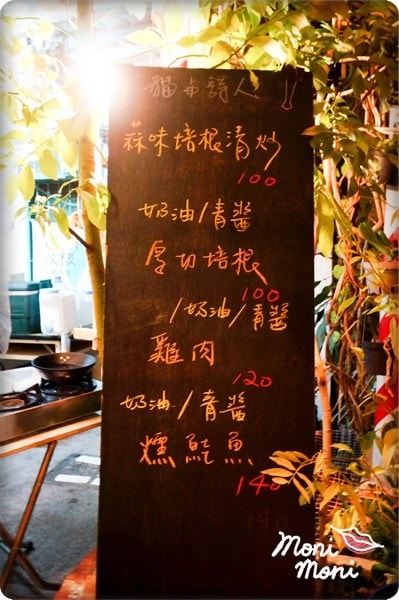 貓与詩人
蒜味培根清炒
100
奶油/青醬
厚切培根
100
/奶油/青醬
雞肉
120
奶油/青醬
燻魷魚
140
moni
moni